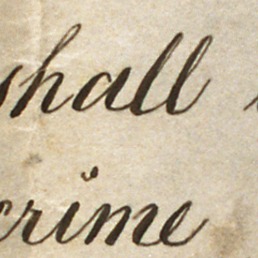 shall
crime